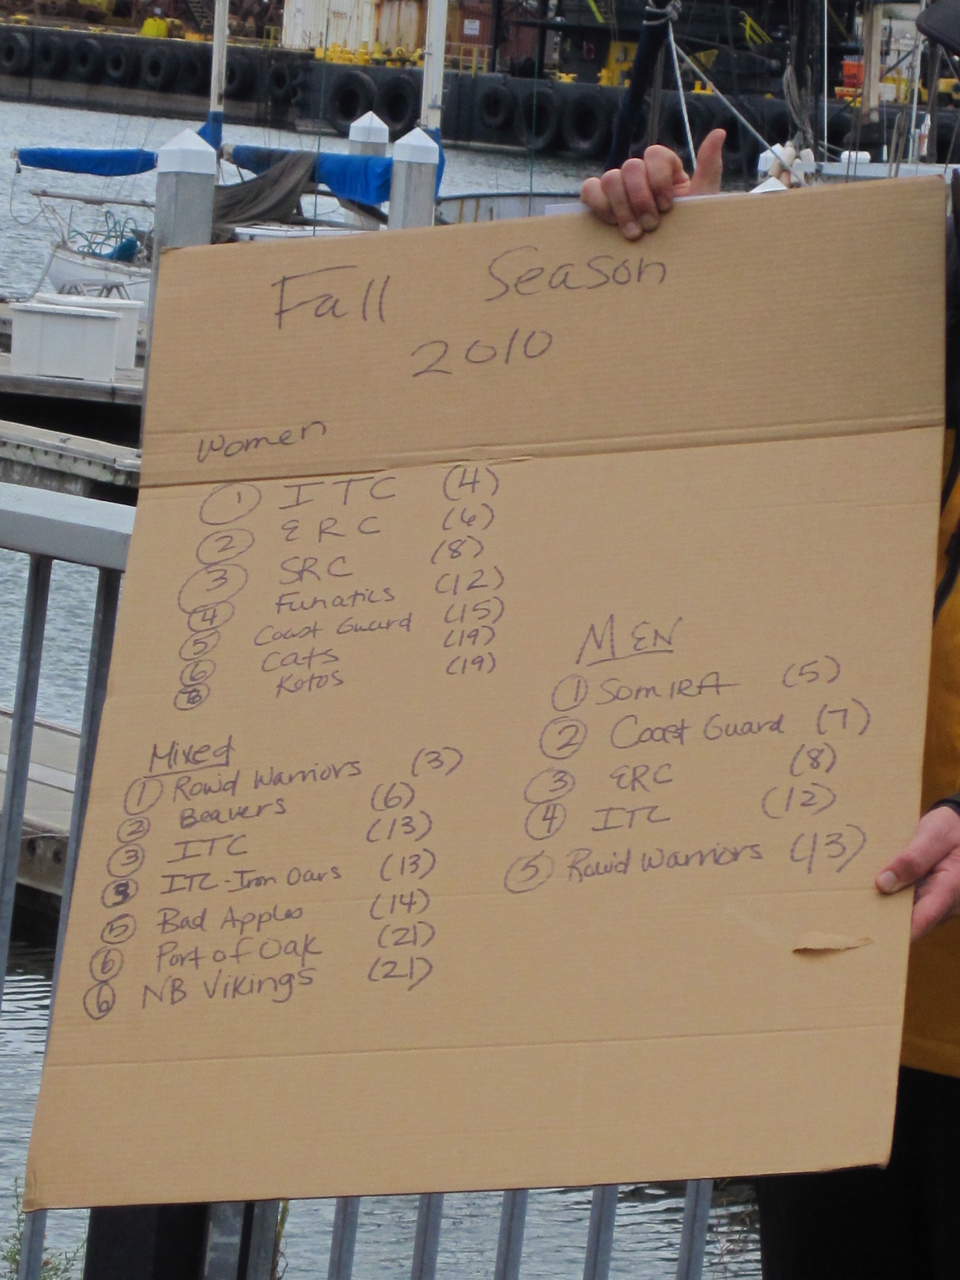 Fall Season
2010
Women
1 ITC (4)
2 ERC (6)
3 SRC (8)
4 Funatics (12)
5 Coast Guard (15)
6 Cats (19)
6 Kotos (19)
Mixed
1 Row'd Warriors (3)
2 Beavers (6)
3 ITC (13)
3 ITC-Iron Oars (13)
5 Bad Apples (14)
6 Port of Oak (21)
6 NB Vikings (21)
MEN
1 SomIRA (5)
2 Coast Guard (7)
3 ERC (8)
4 ITC (12)
5 Row'd Warriors (13)